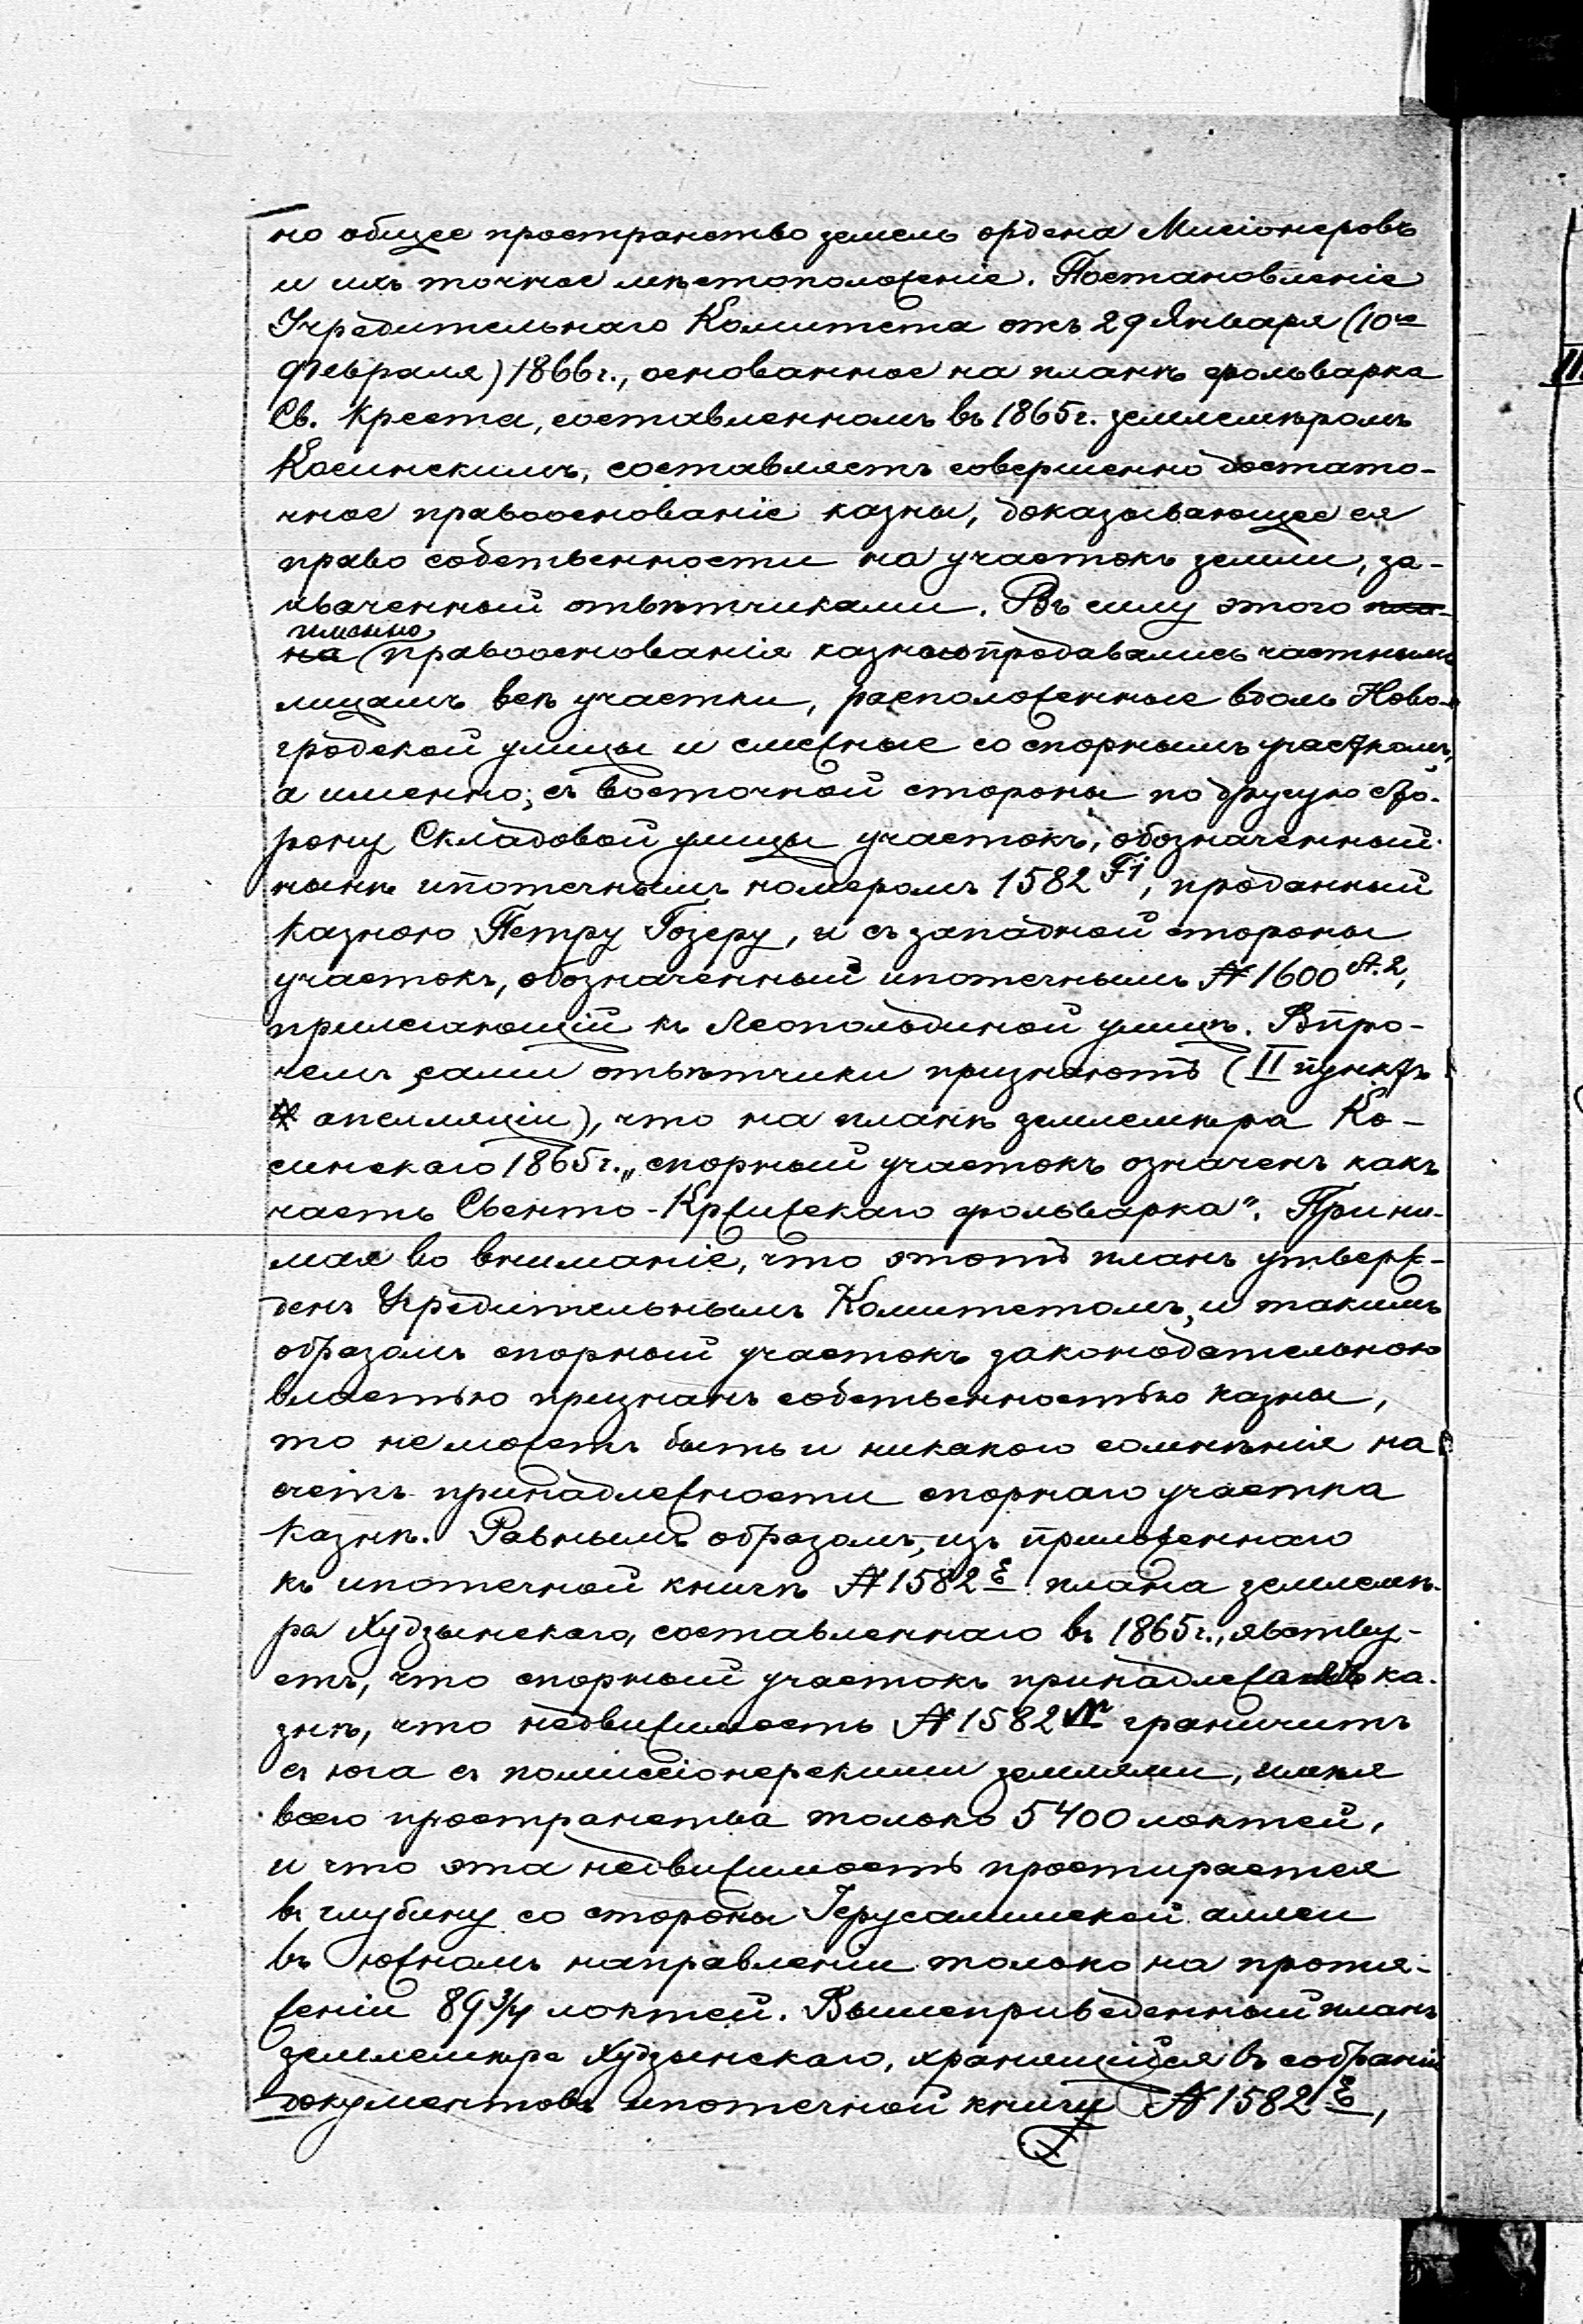 но общее пространство земель ордена Мисіонеровъ
и ихъ точное мѣстоположеніе. Постановленіе
Учредительнаго Комитета отъ 29 Января (10го
Февраля) 1866 г., основанное на планѣ фольварка
Св. Креста, составленномъ въ 1865 г. землемѣромъ
Косинскимъ, составляетъ совершенно достато-
чное правооснованіе казны, доказывающее ея
право собственности на участокъ земли, за-
хваченный отвѣтчиками. Въ силу этого
именно
на правооснованія казною продавались частнымъ
лицамъ всѣ участки, расположенные вдоль Ново-
гродской улицы и смежные со спорнымъ участкомъ,
а именно; съ восточной стороны по другую сто-
рону Складовой улицы участокъ, обозначенный
нынѣ ипотечнымъ номеромъ 1582 Fi, проданный
казною Петру Гозеру, и съ западной стороны
участокъ, обозначенный ипотечнымъ № 1600 А.2,
прилегающій къ Леопольдиной улицѣ. Впро-
чемъ, сами отвѣтчики признаютъ (II пунктъ
апелляціи), что на планѣ землемѣра Ко-
синскаго 1865 г. „спорный участокъ означенъ какъ
часть Свенто-Кржижскаго фольварка". Прини-
мая во вниманіе, что этотъ планъ утверж-
денъ Учредительнымъ Комитетомъ, и такимъ
образомъ спорный участокъ законодательною
властью признанъ собственностью казны,
то не можетъ быть и никакого сомнѣнія на
счетъ принадлежности спорнаго участка
казнѣ. Равнымъ образомъ, изъ приложеннаго
къ ипотечной книгѣ № 1582 E плана землемѣ-
ра Худзынскаго, составленнаго въ 1865 г., явству-
етъ, что спорный участокъ принадлежалъ ка-
знѣ, что недвижимость № 1582 N граничитъ
съ юга съ помиссіонерскими землями, имѣя
всего пространства только 5400 локтей,
и что эта недвижимость простирается
въ глубину со стороны Іерусалимской аллеи
въ южномъ направленіи только на протя-
женіи 89 3/4 локтей. Вышеприведенный планъ
землемѣра Худзынскаго, хранящійся въ собраніи
документовъ ипотечной книги № 1582 E,